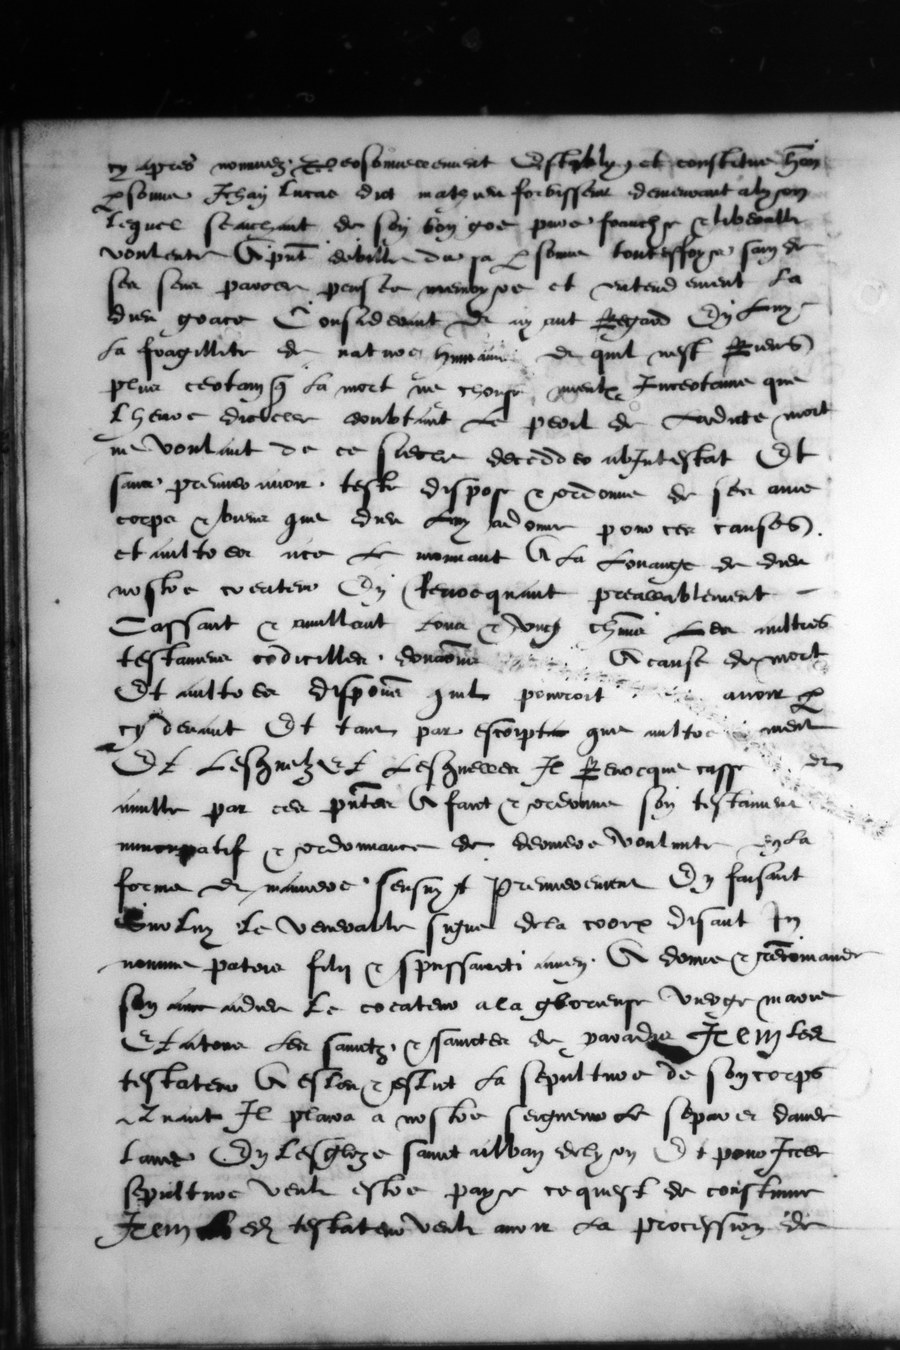 cy apres nommez personnellement estably et constitue hon
psonne Jehan Lucas dict mathieu forbisseur demeurant a lyon
lequel scaichant de son bon gre pure franche et liberalle
voulente A pnt debille de sa psonne touteffoys sain de
ses sens parolle pensee memoyre et entendement la
dieu grace Considerant et ayant Regard En luy
la fragillite de nature humaine et quil nest Riens
plus certain q la mort ne chouse moint Incertaine que
lheure dicelle doubtant le peril de ladicte mort
ne voulant de ce siecle decedder abIntestat Et
sans premier avoir teste dispose et ordonne de ses ame
corps et biens que dieu luy a donne pour ces causes
et aultres ace le mouvant A la louange de dieu
nostre createur En Revocquant preallablement
Cassant et anullant tous et ungs chacuns Les aultres
testamens codicilles donaons A cause de mort
Et aultres disposions quil pourroit avoir p
cy devant Et tant par escript que aultrement
Et Lesquelz Et Lesquelles Il Revocque casse et
anulle par ces pntes A faict et ordonne son testament
nuncupatif et ordonnance de derniere voulente en la
forme et maniere sensuyt Premierement En faisant
sur luy le venerable signe de la croix disant In
nomine patris filii et spussancti amen A donne et recomande
son ame a dieu le createur a la glorieuse vierge marie
Et a tous les sainctz et sainctes de paradis Item led
testateur A esleu et eslict la sepulture de son corps
quant Il plaira a nostre seigneur le separer davec
lame En lesglize sainct alban de lyon Et pour Icelle
sepulture veult estre paye ce quest de coustume
Item led testateur veult avoir la procession de